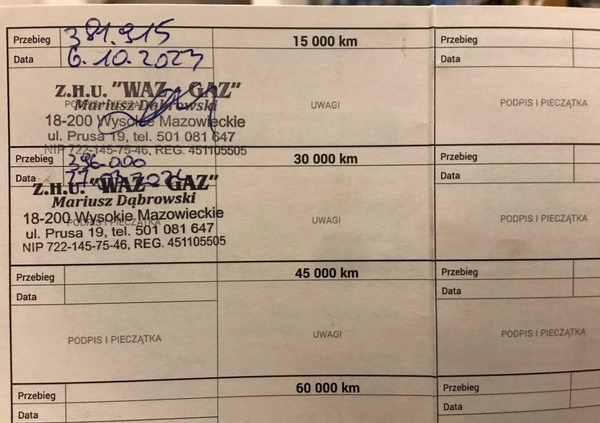 Przebieg 381.915 15 000 km Przebieg
Data 6.10.2023 Data
Z.H.U. "WAZ - GAZ"
Mariusz Dąbrowski
PODPIS I PIECZĄTKA UWAGI PODPIS I PIECZĄTKA
18-200 Wysokie Mazowieckie
ul. Prusa 19, tel. 501 081 647
NIP 722-145-75-46, REG. 451105505
Przebieg 396.000 30 000 km Przebieg
Data Data
Z.H.U. "WAZ - GAZ"
Mariusz Dąbrowski
18-200 Wysokie Mazowieckie
PODPIS I PIECZĄTKA UWAGI PODPIS I PIECZĄTKA
ul. Prusa 19, tel. 501 081 647
NIP 722-145-75-46, REG. 451105505
Przebieg 45 000 km Przebieg
Data Data
PODPIS I PIECZĄTKA UWAGI PODPIS I PIECZĄTKA
Przebieg 60 000 km Przebieg
Data Data